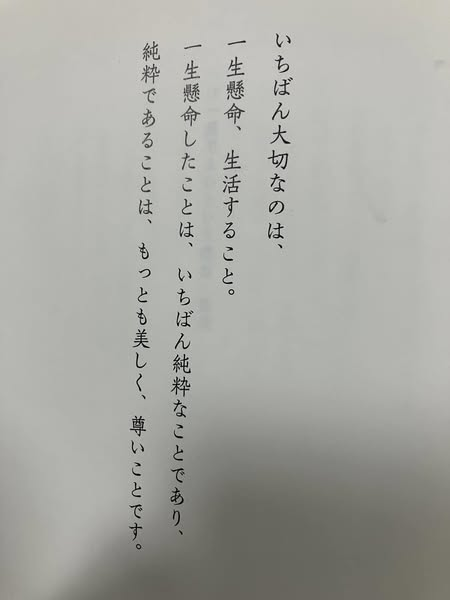 いちばん大切なのは、
一生懸命、生活すること。
一生懸命したことは、いちばん純粋なことであり、
純粋であることは、もっとも美しく、尊いことです。